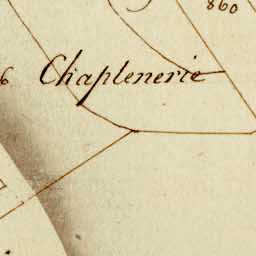 860
6 Chaplenerie